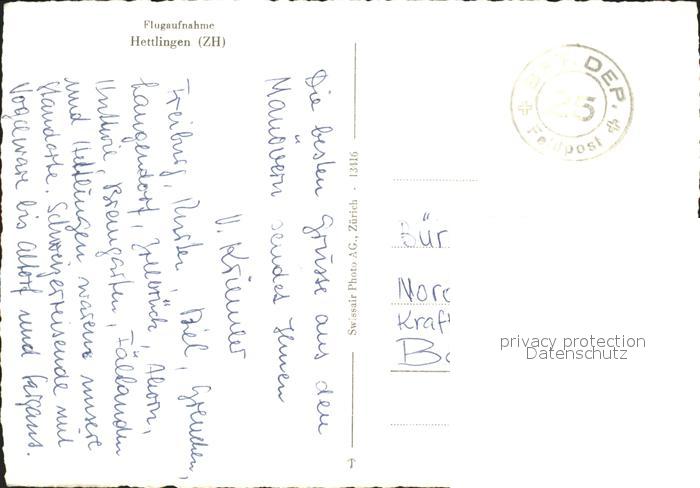 Flugaufnahme
Hettlingen (ZH)
Die besten Grüsse aus den
Manövern sendet Ihnen
V. Krümler
Freiburg, Biel, Grenchen,
Langendorf, Zollbrück, Ahorn,
Bremgarten, Fällanden
und Hettlingen waren unsere
Standorte. Schweizerreisende mit
bis Altdorf und Sargans.
Swissair Photo AG., Zürich · 13416
DEP.
25
Feldpost
Bür
Nord
Kraft
Ba
privacy protection
Datenschutz